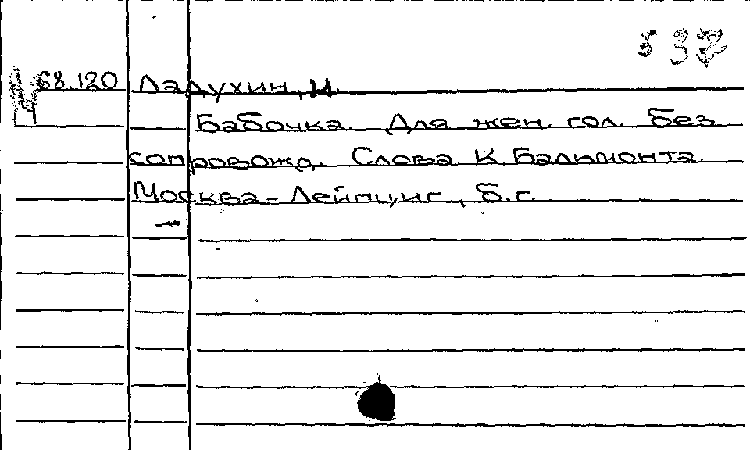 537
68.120 Ладухин, Н.
Бабочка. Для жен. гол. без
сопровожд. Слова К. Бальмонта
Москва-Лейпциг, б.г.